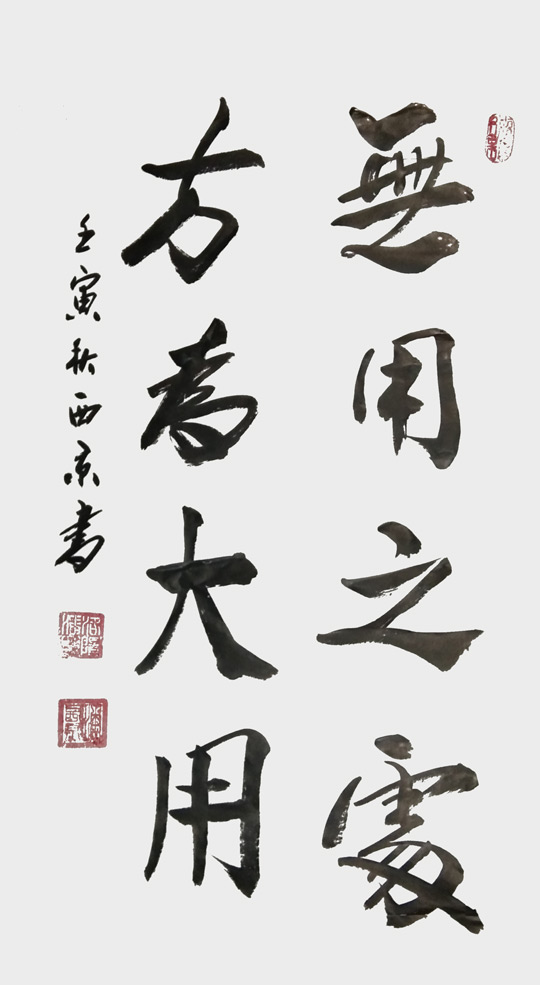 無用之處
方為大用
壬寅秋西京書